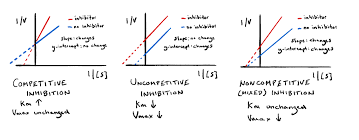 1/V
inhibitor
no inhibitor
slope: changes
y-intercept: no change
1/[S]
COMPETITIVE
INHIBITION
Km ↑
Vmax unchanged
1/V
inhibitor
no inhibitor
slope: no change
y-intercept: changes
1/[S]
UNCOMPETITIVE
INHIBITION
Km ↓
Vmax ↓
1/V
inhibitor
no inhibitor
slope: changes
y-intercept: changes
1/[S]
NONCOMPETITIVE
(MIXED) INHIBITION
Km unchanged
Vmax ↓